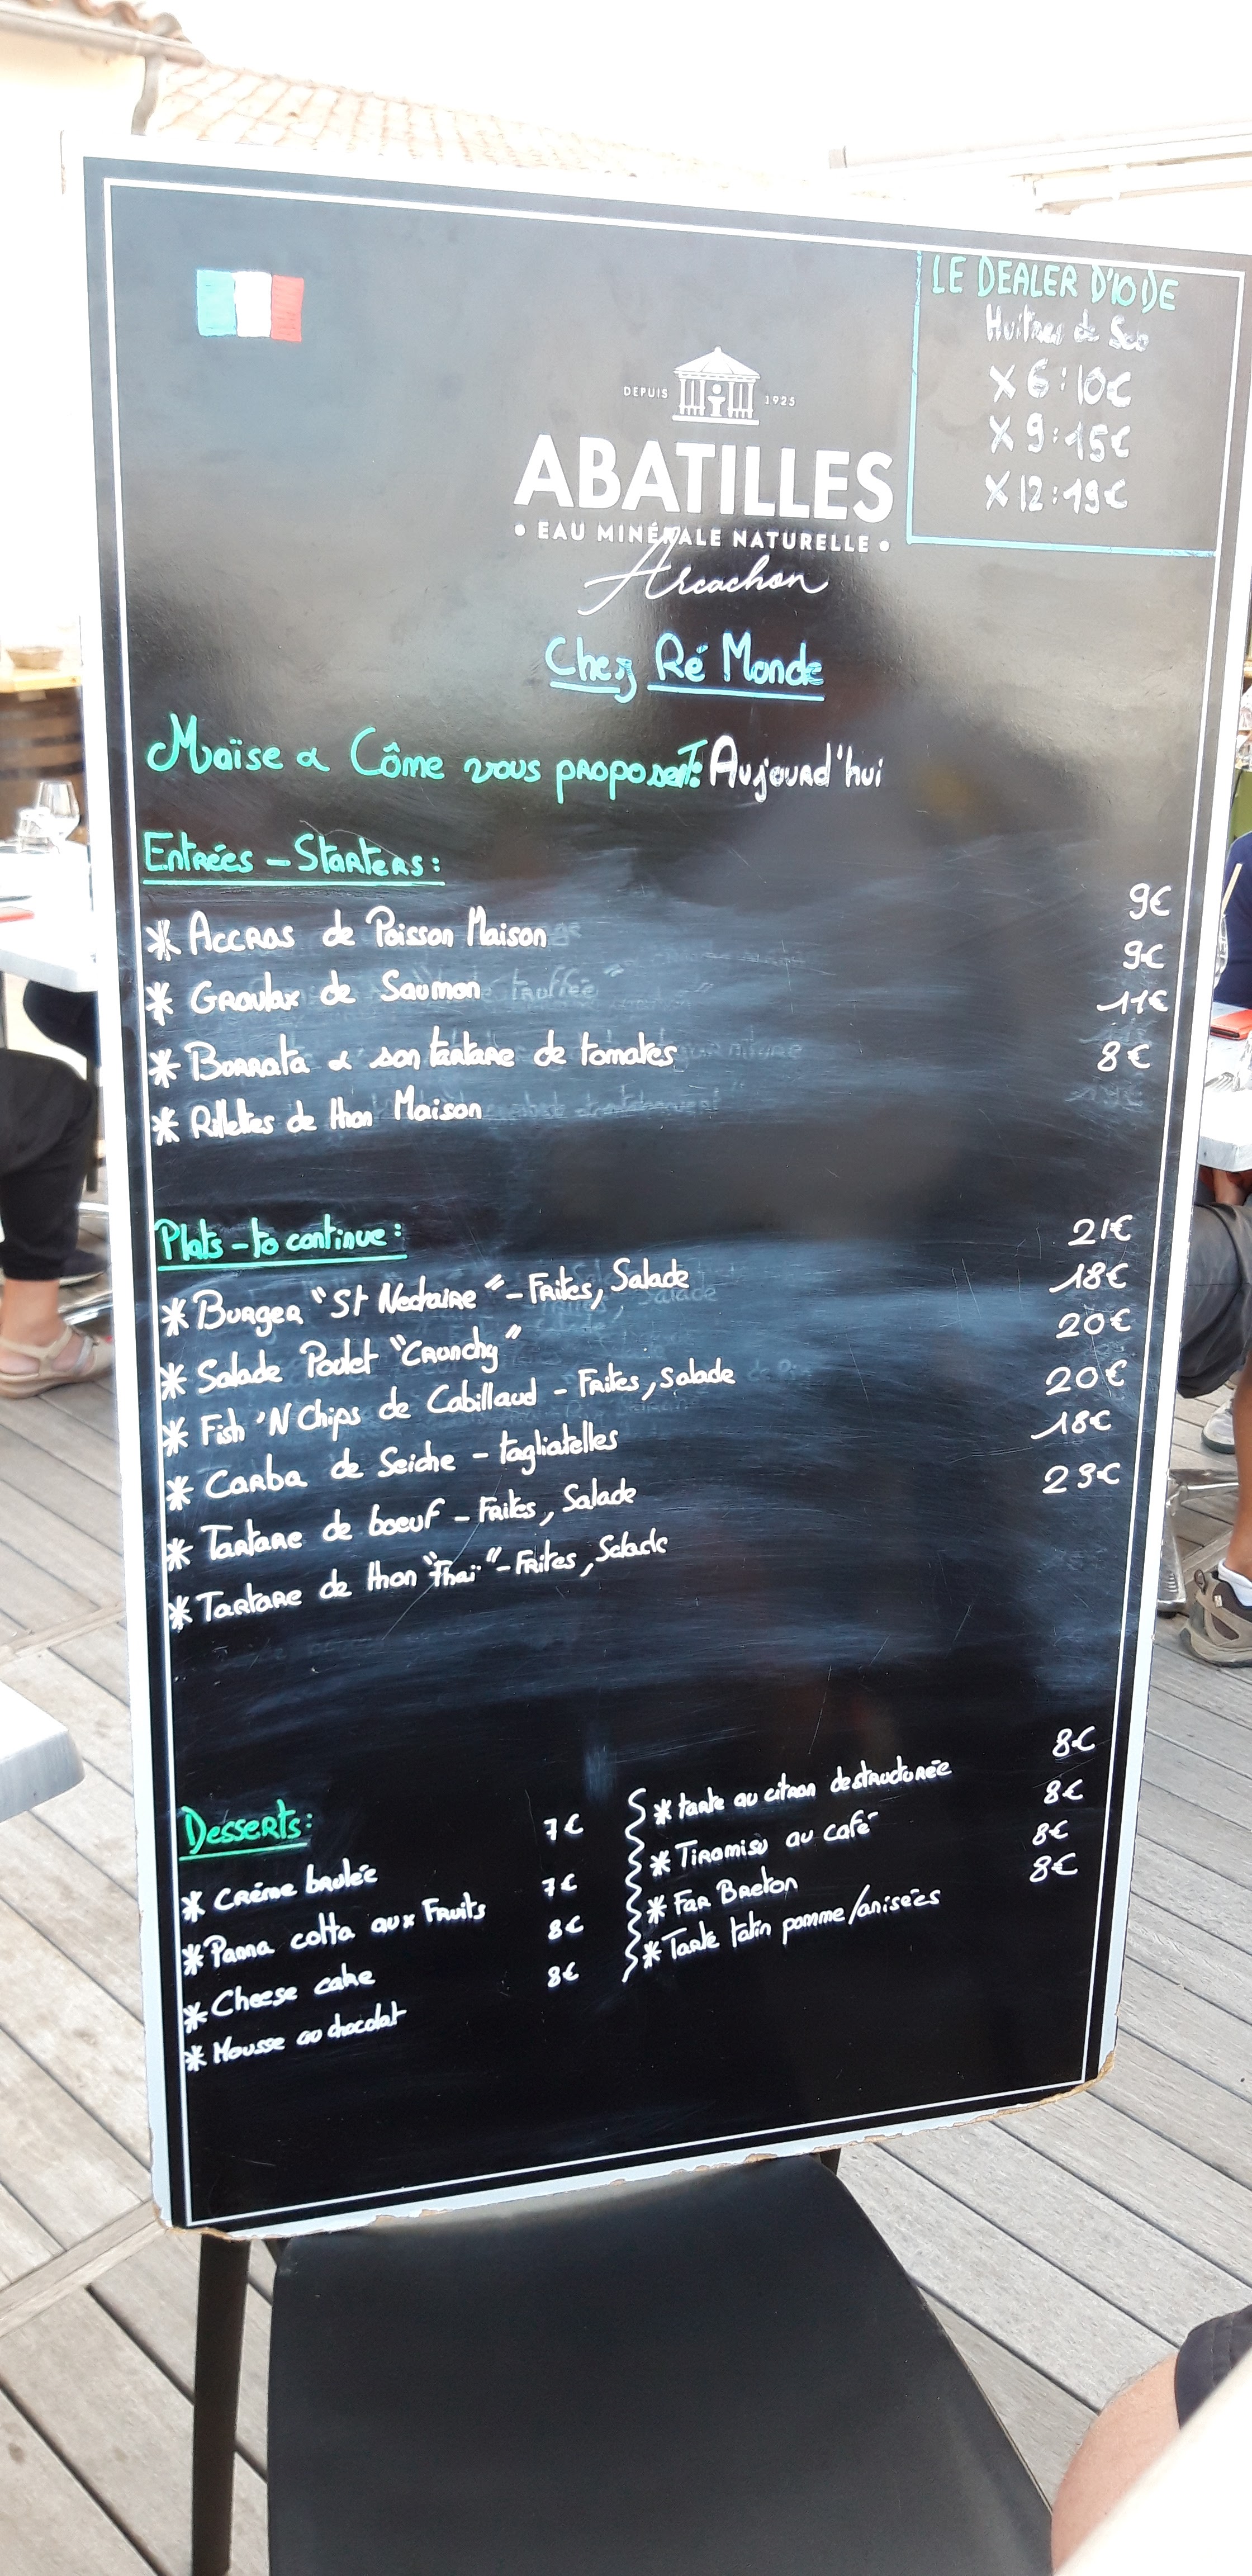 LE DEALER D'IODE
Huîtres de Seb
X 6 : 10€
X 9 : 15€
X 12 : 19€
DEPUIS 1925
ABATILLES
• EAU MINÉRALE NATURELLE •
Arcachon
Chez Ré Monde
Maïse & Côme vous proposent: Aujourd'hui
Entrées - Starters :
* Accras de Poisson Maison 9€
* Gravlax de Saumon 9€
* Burrata & son tartare de tomates 11€
* Rillettes de thon Maison 8€
Plats - to continue :
* Burger "St Nectaire" - Frites, Salade 21€
* Salade Poulet "Crunchy" 18€
* Fish 'N Chips de Cabillaud - Frites, salade 20€
* Carba de Seiche - tagliatelles 20€
* Tartare de boeuf - Frites, Salade 18€
* Tartare de thon "Thaï" - Frites, Salade 23€
Desserts :
* Crème brulée 7€
* Panna cotta aux Fruits 7€
* Cheese cake 8€
* Mousse au chocolat 8€
* tarte au citron destructurée 8€
* Tiramisu au café 8€
* Far Breton 8€
* Tarte tatin pomme/anisées 8€